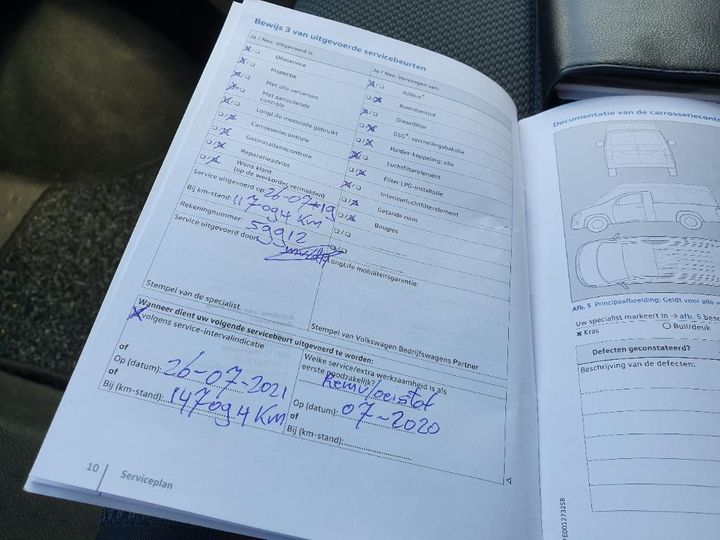 Bewijs 3 van uitgevoerde servicebeurten
Ja / Nee. Uitgevoerd is:
Olieservice
Inspectie
Met olie verversen
Met aanvullende
controle
LongLife motorolie gebruikt
Carrosseriecontrole
Gasinstallatiecontrole
Reparatieadvies
Wens klant
(op de werkorder vermelden)
Service uitgevoerd op: 26-07-19
Bij km-stand: 117094 KM
Rekeningnummer: 59912
Service uitgevoerd door:
Stempel van de specialist
Ja / Nee. Vervangen van:
AdBlue®
Remvloeistof
Dieselfilter
DSG®: versnellingsbakolie
Haldex-koppeling: olie
Luchtfilterelement
Filter LPG-installatie
Interieurluchtfilterelement
Getande riem
Bougies
LongLife mobiliteitsgarantie:
Stempel van Volkswagen Bedrijfswagens Partner
Wanneer dient uw volgende servicebeurt uitgevoerd te worden:
volgens service-intervalindicatie
of
Op (datum): 26-07-2021
of
Bij (km-stand): 147094 KM
Welke service/extra werkzaamheid is als
eerste noodzakelijk? Remvloeistof
Op (datum): 07-2020
of
Bij (km-stand):
10
Serviceplan
Documentatie van de carrosseriecontr
Afb. 5 Principeafbeelding: Geldt voor alle
Uw specialist markeert in → afb. 5 besc
Kras
Buil/deuk
Defecten geconstateerd?
Beschrijving van de defecten: